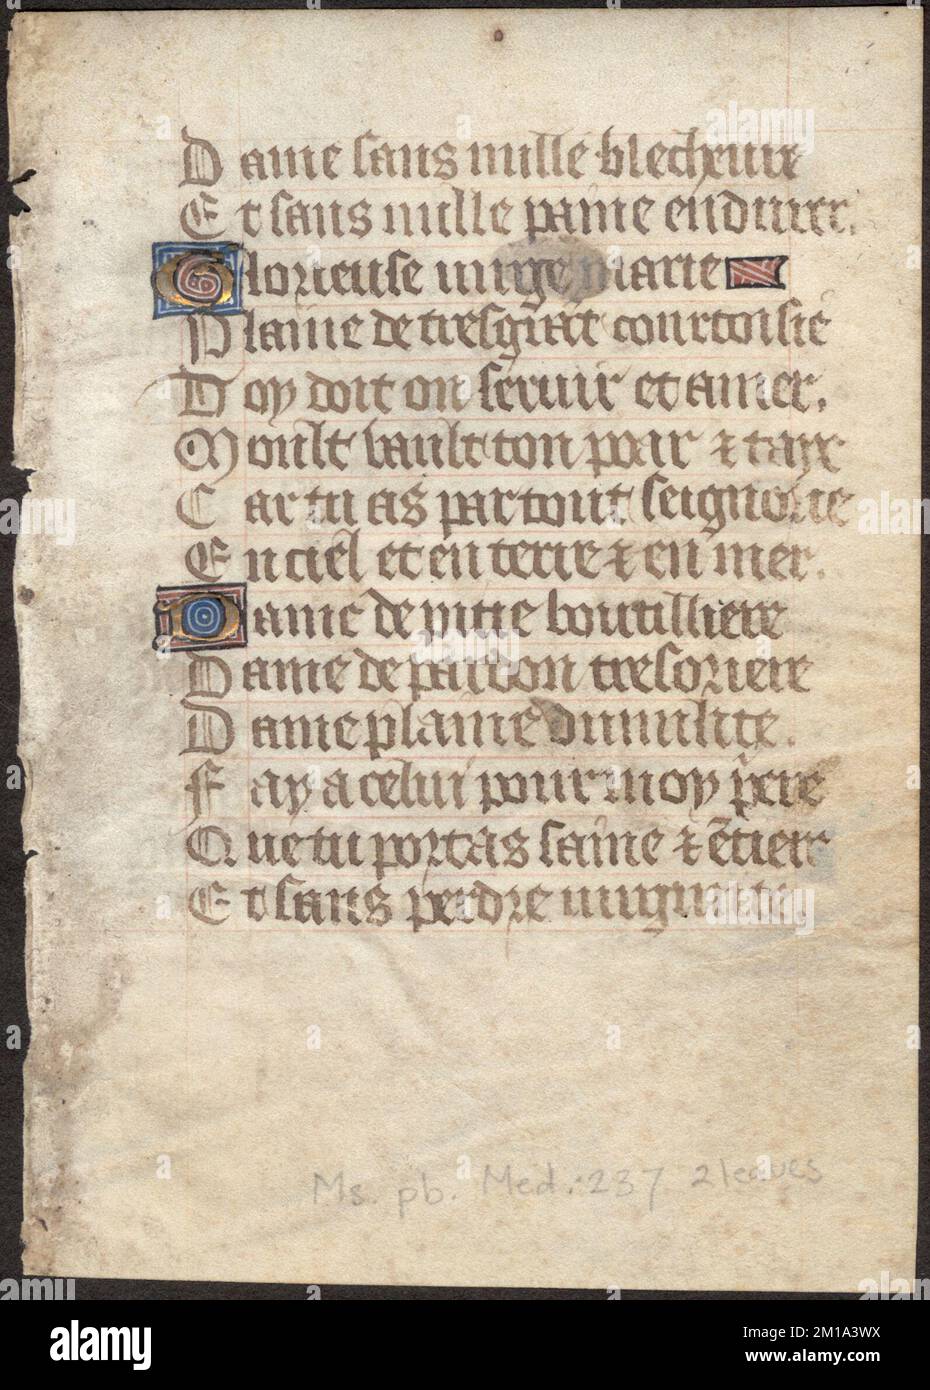 Dame sans nulle blecheure
Et sans nulle paine endurer.
Glorieuse uirge marie
Plaine de tresgrāt courtoisie
Doy doit on seruir et amer.
Moult vault ton pooir &
Car tu as partout seignorie
En ciel et en terre & en mer.
Dame de pitie boutilliere
Dame de pardon tresoriere
Dame plaine dumilite.
Fay a celui pour moy p̄iere
Que tu portas saine & ētiere
Et sans perdre uirginite.
Ms. pb. Med.: 237 2 leaves
alamy
Image ID: 2M1A3WX
www.alamy.com